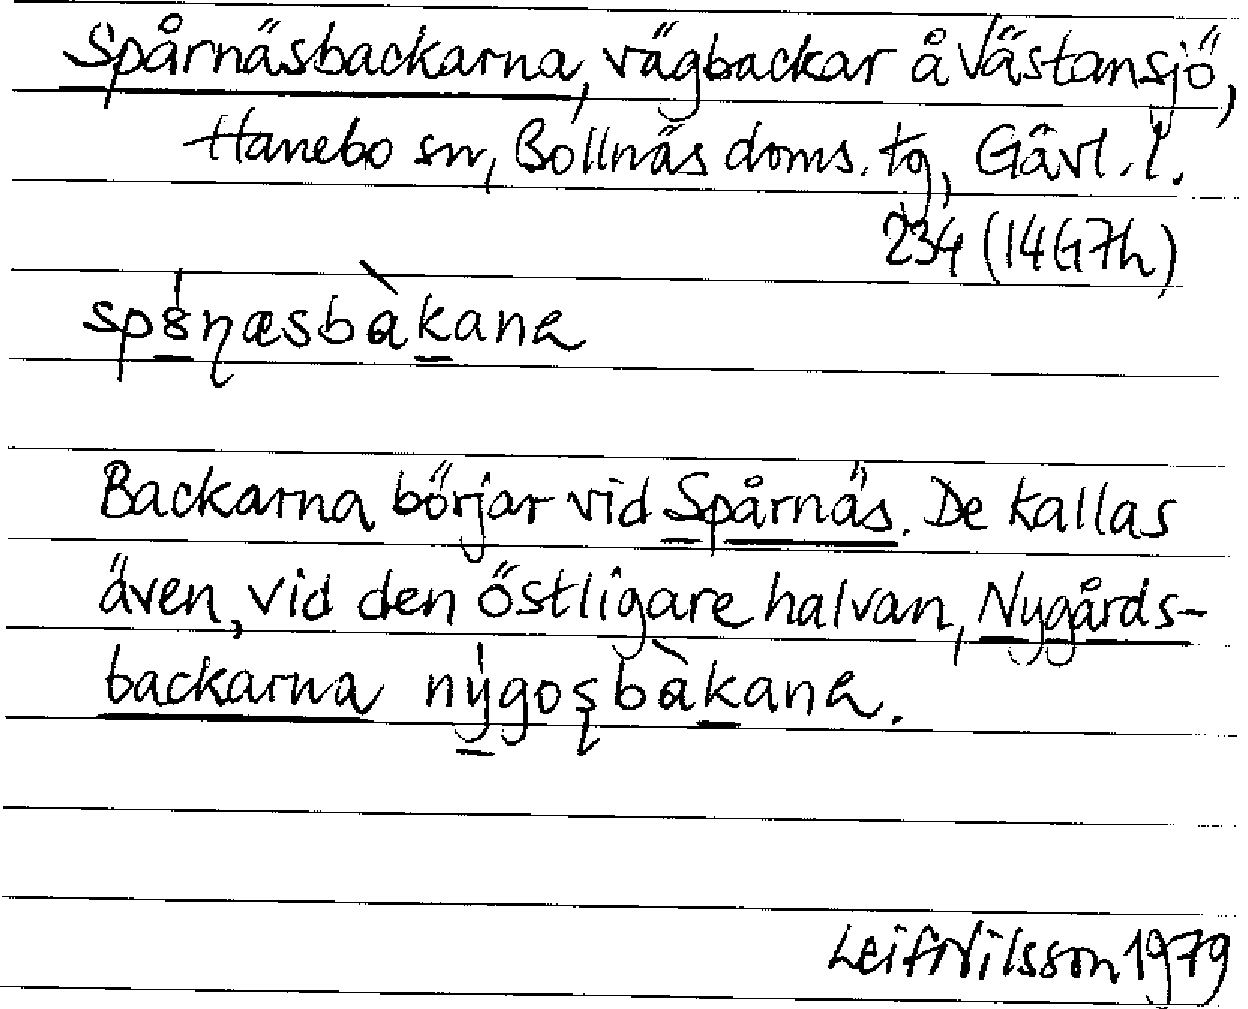 Spårnäsbackarna, vägbackar å Västansjö,
Hanebo sn, Bollnäs doms. tg, Gävl. l.
234 (14G7h)
sp8́ɳæsbàkana
Backarna börjar vid Spårnäs. De kallas
även, vid den östligare halvan, Nygårds-
backarna nýgoʂbàkana.
Leif Nilsson 1979